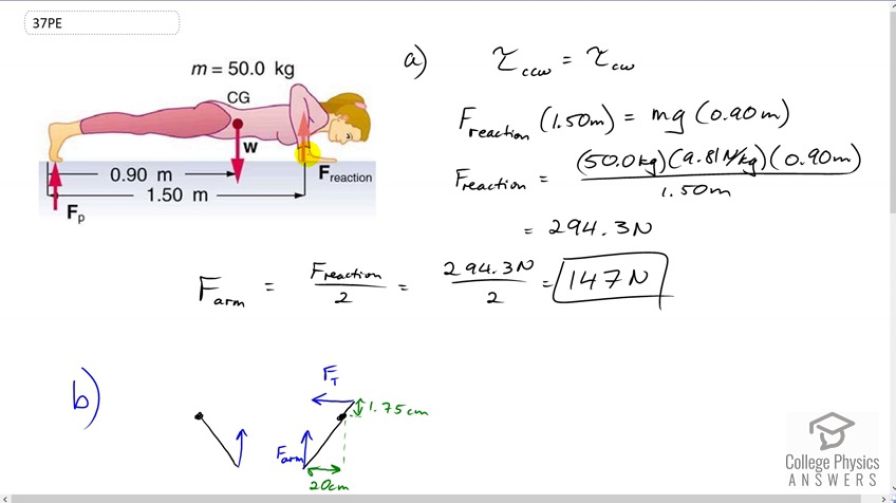 37PE
m = 50.0 kg
CG
w
0.90 m
1.50 m
F reaction
Fp
a) τccw = τcw
Freaction (1.50m) = mg (0.90m)
Freaction = (50.0kg)(9.81N/kg)(0.90m) / 1.50m
= 294.3N
Farm = Freaction / 2 = 294.3N / 2 = 147N
b)
FT
1.75cm
Farm
20cm
College Physics
ANSWERS